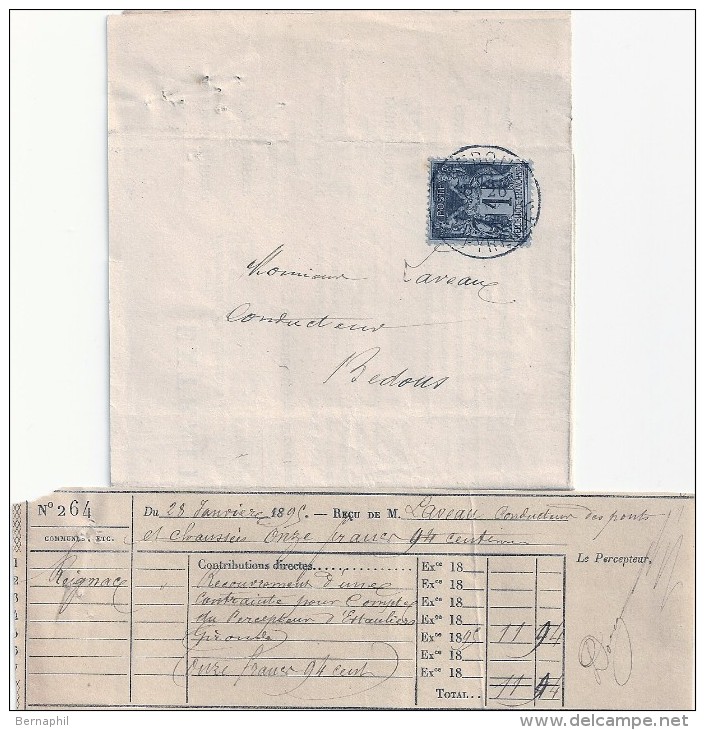 POSTE 1
Monsieur Laveau
Conducteur
Bedous
N° 264
Du 28 Janvier 1895. — Reçu de M. Laveau Conducteur des ponts
et chaussées onze francs 94 centimes
COMMUNES, ETC.
Le Percepteur,
Contributions directes
Exce 18
Reignac
Recouvrement d'une
Exce 18
Contrainte pour Compte
Exce 18
du Percepteur d'Etauliers
Exce 1895 11 94
Gironde
Exce 18
Onze francs 94 cent
Exce 18
TOTAL 11 94
Bernaphil
www.delcampe.net